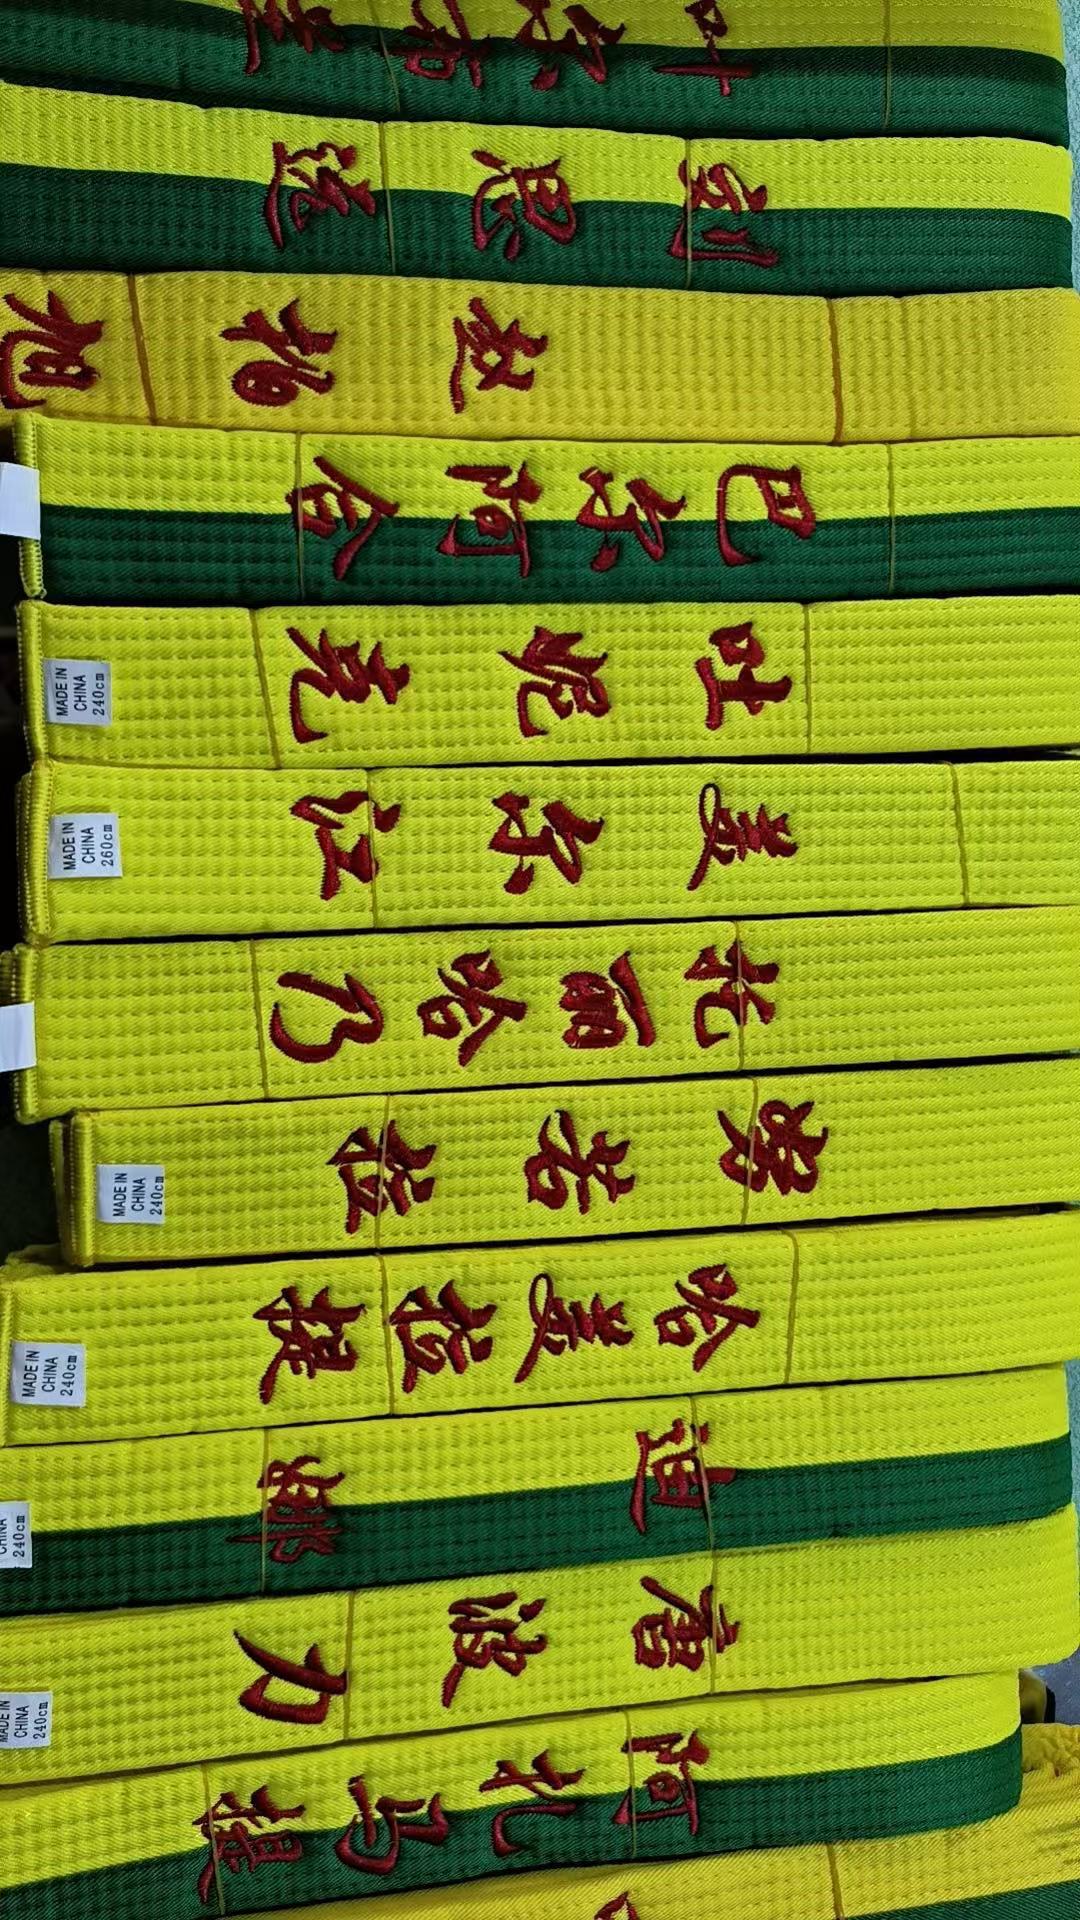 叶尔布
刘思
赵
旭
巴尔阿合
吐妮克
MADE IN
CHINA
240cm
麦尔江
MADE IN
CHINA
260cm
托丽哈乃
努若拉
MADE IN
CHINA
240cm
哈麦拉提
MADE IN
CHINA
240cm
迪娜
CHINA
240cm
唐波力
MADE IN
CHINA
240cm
阿扎马提